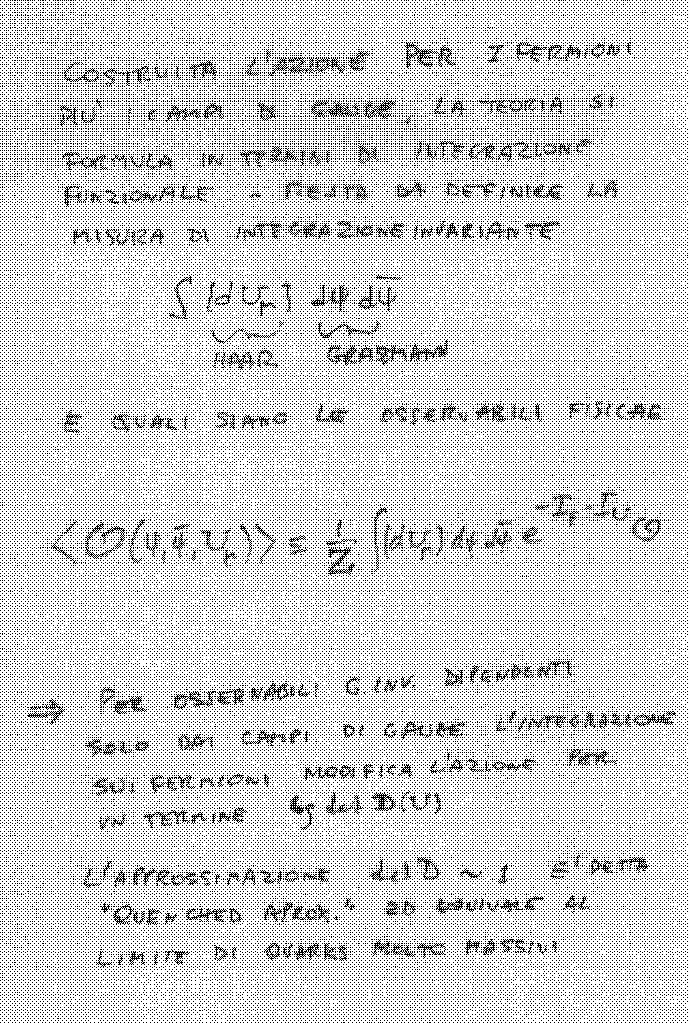 COSTRUITA L'AZIONE PER I FERMIONI
PIU' I CAMPI DI GAUGE, LA TEORIA SI
FORMULA IN TERMINI DI INTEGRAZIONE
FUNZIONALE - RESTA DA DEFINIRE LA
MISURA DI INTEGRAZIONE INVARIANTE
∫ [d U_μ] dψ dψ̄
HAAR GRASMANN
E QUALI SIANO LE OSSERVABILI FISICHE
<O(ψ,ψ̄,U_μ)> = 1/Z ∫[dU_μ] dψ dψ̄ e^{-I_f - I_U} O
⇒ PER OSSERVABILI G. INV. DIPENDENTI
SOLO DAI CAMPI DI GAUGE L'INTEGRAZIONE
SUI FERMIONI MODIFICA L'AZIONE PER
UN TERMINE lg det D(U)
L'APPROSSIMAZIONE det D ~ 1 E' DETTA
"QUENCHED APROX." ED EQUIVALE AL
LIMITE DI QUARKS MOLTO MASSIVI